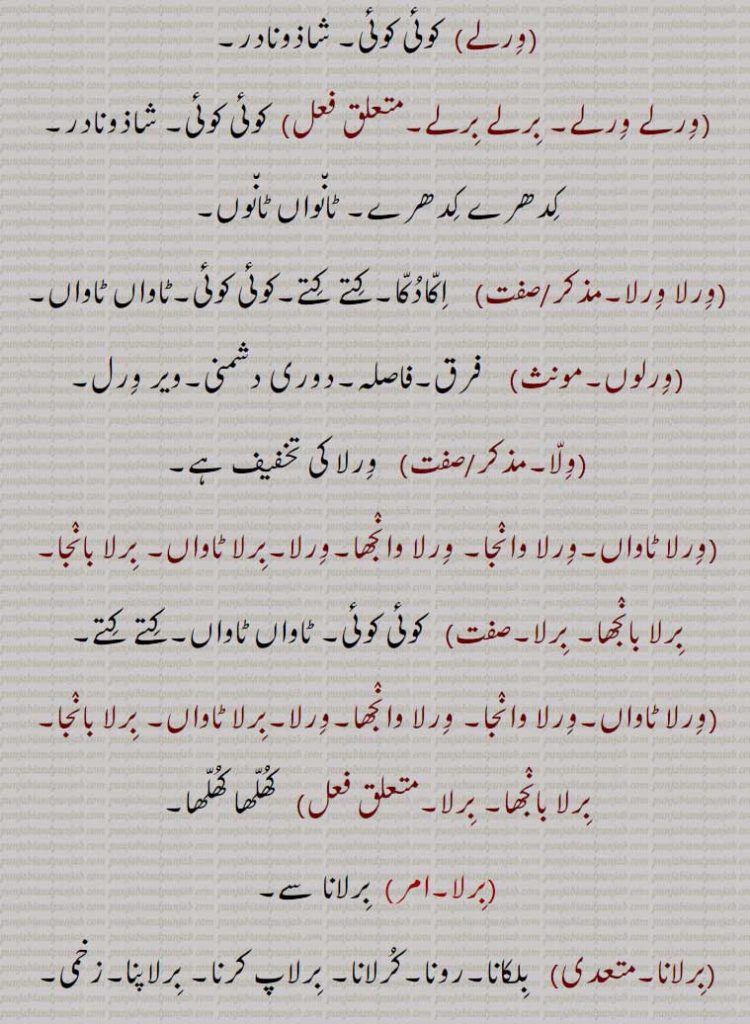 (وِرلے) کوئی کوئی۔ شاذونادر۔
(وِرلے وِرلے۔ بِرلے بِرلے۔ متعلق فعل) کوئی کوئی۔ شاذونادر۔
کِدھرے کِدھرے۔ ٹانْواں ٹانْوں۔
(وِرلا وِرلا۔مذکر/صفت) اِکّادُکّا۔کِتے کِتے۔کوئی کوئی۔ٹاواں ٹاواں۔
(وِرلوں۔مونث) فرق۔فاصلہ۔دوری دشمنی۔ویر وِرل۔
(وِلّا۔مذکر/صفت) وِرلا کی تخفیف ہے۔
(وِرلا ٹاواں۔وِرلا وانْجا۔ وِرلا وانْجھا۔وِرلا۔بِرلا ٹاواں۔ بِرلا بانْجا۔
بِرلا بانْجھا۔ بِرلا۔صفت) کوئی کوئی۔ ٹاواں ٹاواں۔کِتے کِتے۔
(وِرلا ٹاواں۔وِرلا وانْجا۔ وِرلا وانْجھا۔وِرلا۔بِرلا ٹاواں۔ بِرلا بانْجا۔
بِرلا بانْجھا۔ بِرلا۔متعلق فعل) کھُلّھا کھُلّھا۔
(بِرلا۔امر) بِرلانا سے۔
(بِرلانا۔متعدی) بِلکانا۔رونا۔کُرلانا۔ بِرلاپ کرنا۔ بِرلاپنا۔زخمی۔